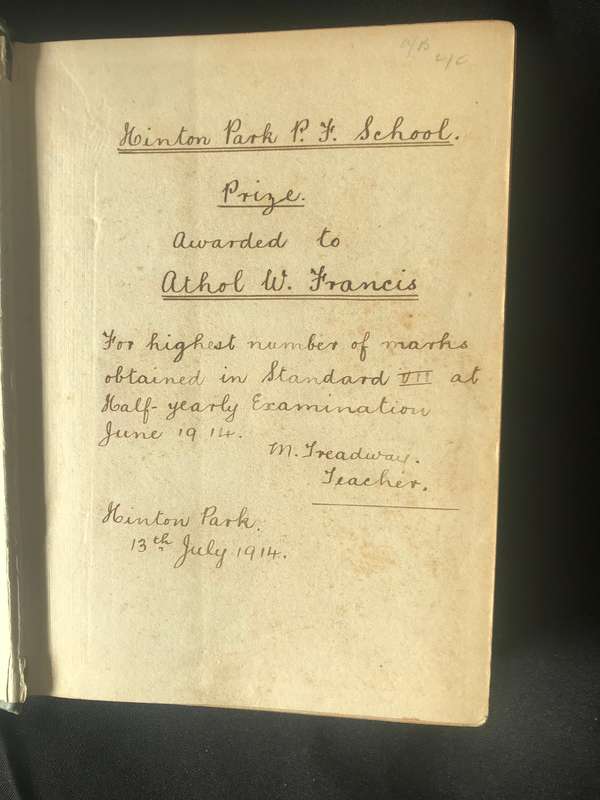 a/B
c/c
Hinton Park P. F. School.
Prize.
Awarded to
Athol W. Francis
For highest number of marks
obtained in Standard VII at
Half-yearly Examination
June 1914.
M. Treadway.
Teacher.
Hinton Park.
13th July 1914.